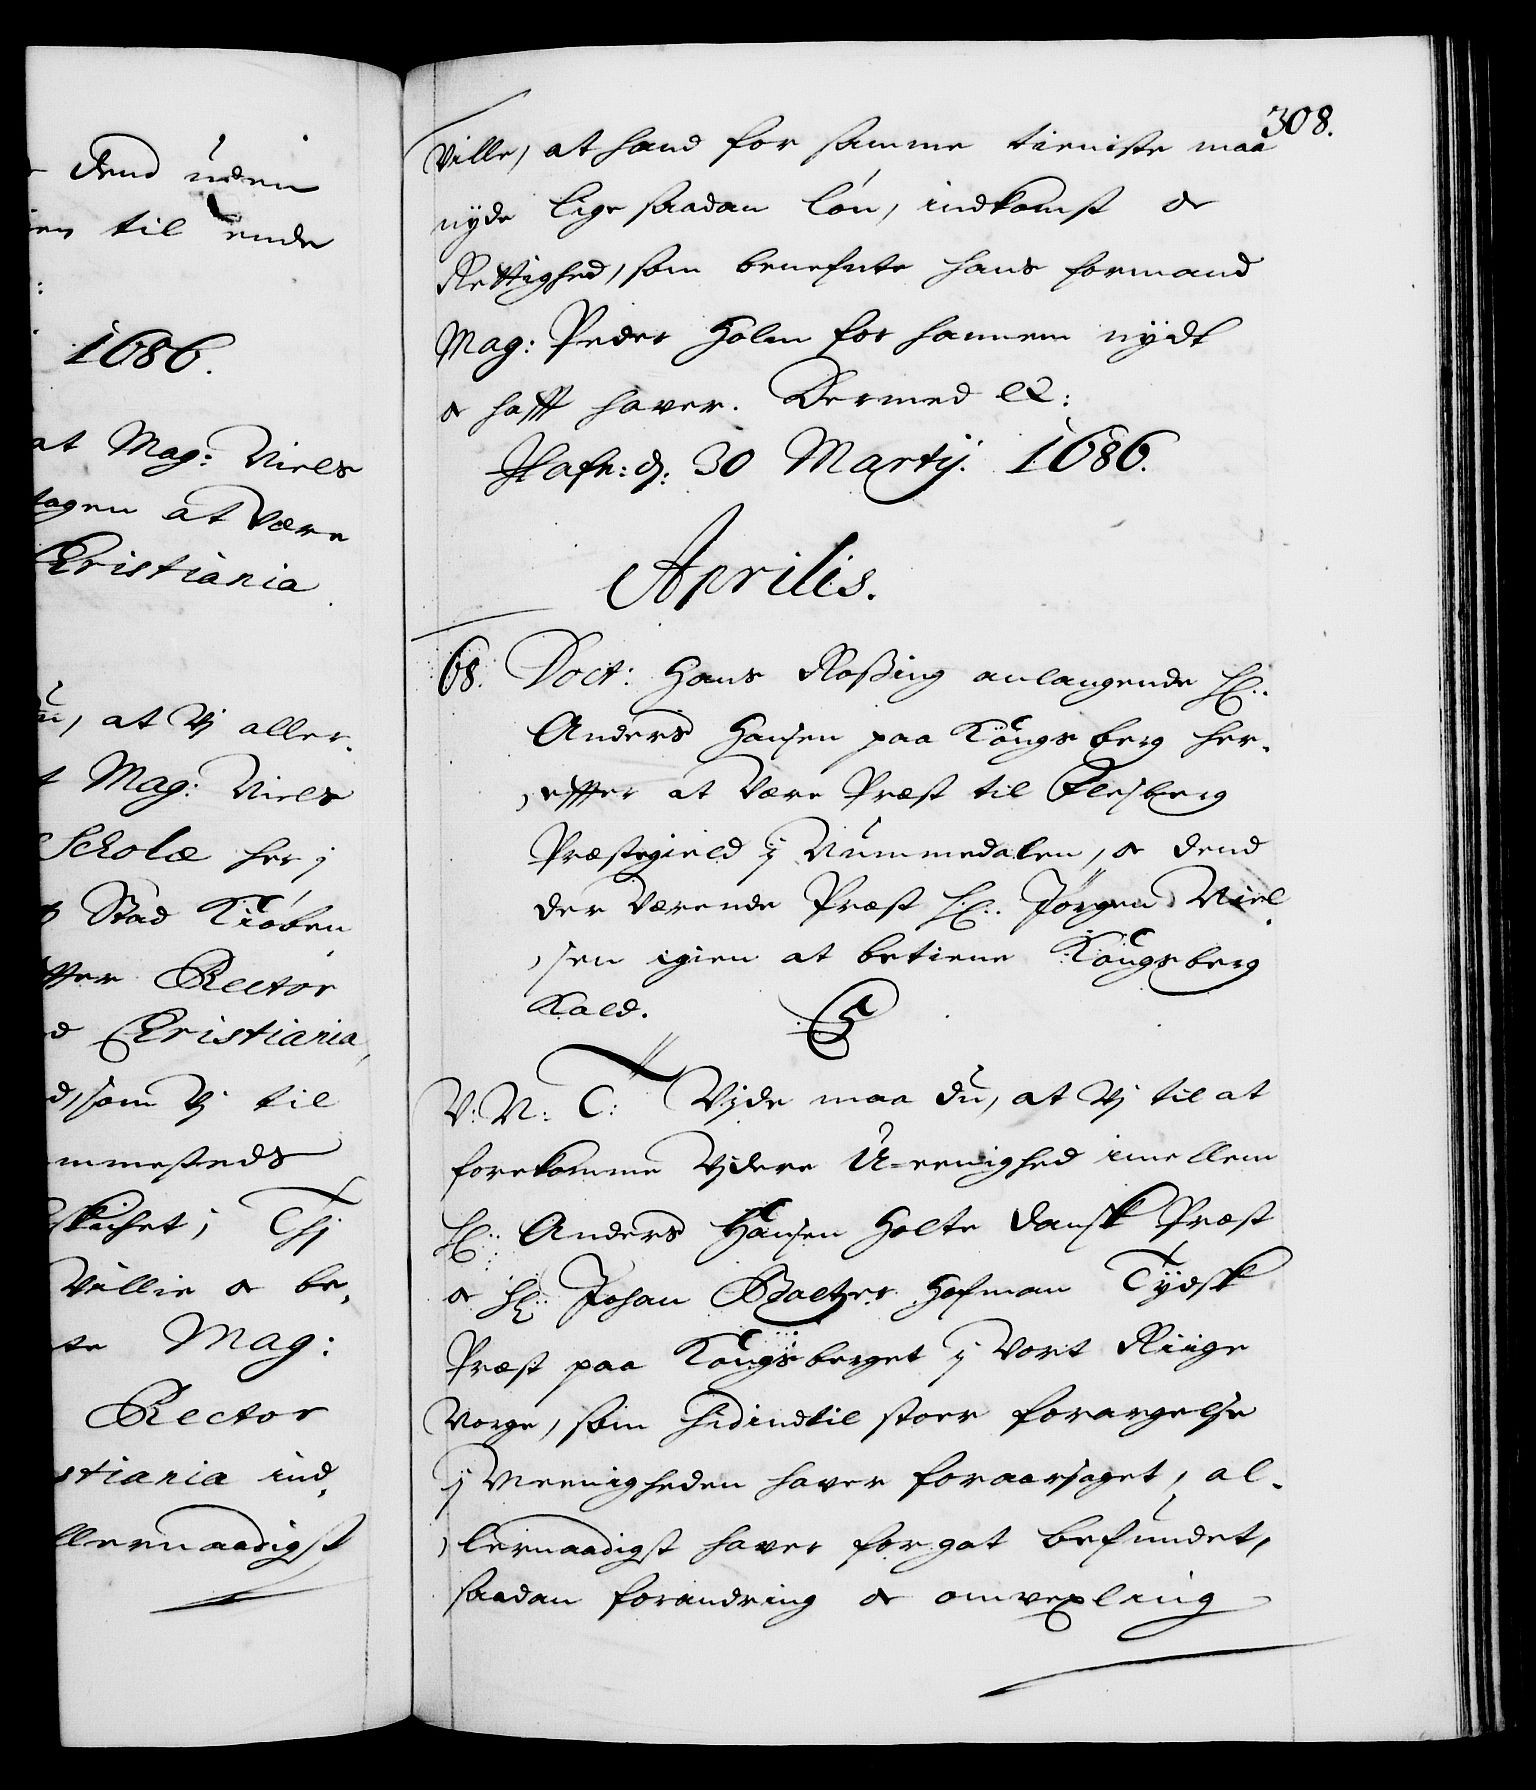 Dend uden
til ende
1686.
at Mag: Niels
tagen at være
Christiania
at Vj aller-
Mag: Niels
Scholæ her j
Stad Kiøben
Rector
Christiania,
som Vj til
Thj
Villie og be-
Mag:
Rector
stiania ind-
llernaadigst
308.
Ville, at hand for samme tieniste maa
nyde lige saadan løn, indkomst og
Rettighed, som benefnte hans formand
Mag: Peder Holm for hannem nydt
og hafft haver. Dermed etc:
Hafn: d: 30 Martij. 1686.
Aprilis.
68. Doct: Hans Rosing anlangende Hr:
Anders Hansen paa Kongsberg her-
effter at være Præst til Flesberg
Præstegield j Nummedalen, og dend
der værende Præst Hr: Jørgen Niel-
sen igien at betiene Kongsberg
Kald.
V: N: T: Vjde maa du, at Vj til at
forekomme Vjdere U-eenighed imellem
Hr: Anders Hansen Holte Dansk Præst
og Hr: Johan Baltzer Hofman Tydsk
Præst paa Kongsberget j Vort Riige
Norge, som hidindtil stoer forargelse
j Meenigheden haver foraarsaget, al-
lernaadigst haver for got befundet,
saadan forandring og omvexling